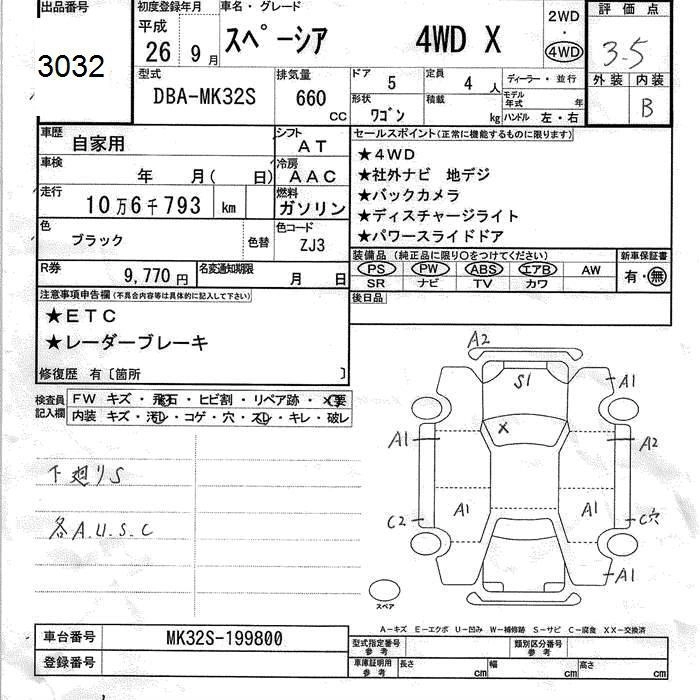 出品番号
3032
初度登録年月
平成
26 9月
車名・グレード
スペーシア 4WD X
2WD
・
4WD
評価点
3-5
外装 内装
B
型式
DBA-MK32S
排気量
660
CC
ドア
5
定員
4 人
形状
ワゴン
積載
kg
ディーラー・並行
モデル年式 年
ハンドル 左・右
車歴
自家用
シフト
AT
車検
年 月( 日)
冷房
AAC
走行
10万6千793 km
燃料
ガソリン
色
ブラック
色替
色コード
ZJ3
R券
9,770円
名変通知期限
月 日
セールスポイント(正常に機能するものに限ります)
★4WD
★社外ナビ 地デジ
★バックカメラ
★ディスチャージライト
★パワースライドドア
装備品 (純正品に限り○をつけてください)
PS PW ABS エアB AW
SR ナビ TV カワ
新車保証書
有・無
後日品
注意事項申告欄(不具合内容等は具体的に記入して下さい)
★ETC
★レーダーブレーキ
修復歴 有〔箇所 〕
検査員記入欄
FW キズ・飛石・ヒビ割・リペア跡・×要
内装 キズ・汚レ・コゲ・穴・スレ・キレ・破レ
下廻りS
各A.U.S.C
A2
S1
A1
X
A1
A2
A1
A1
C2
C穴
A1
スペア
A-キズ E-エクボ U-凹み W-補修跡 S-サビ C-腐食 XX-交換済
車台番号
MK32S-199800
登録番号
型式指定番号
参考
類別区分番号
参考
車庫証明用
参考
長さ cm
幅 cm
高さ cm